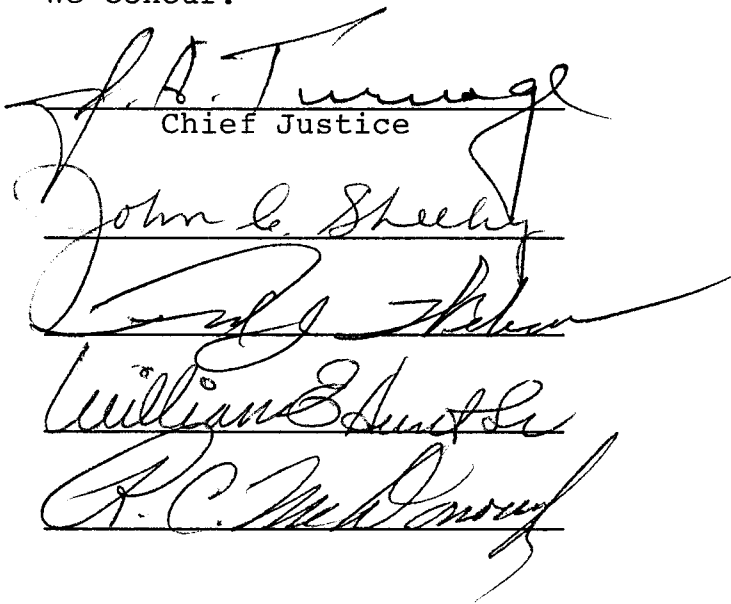 We concur:
J. A. Turnage
Chief Justice
John C. Sheehy
William E. Hunt Sr
R. C. McDonough